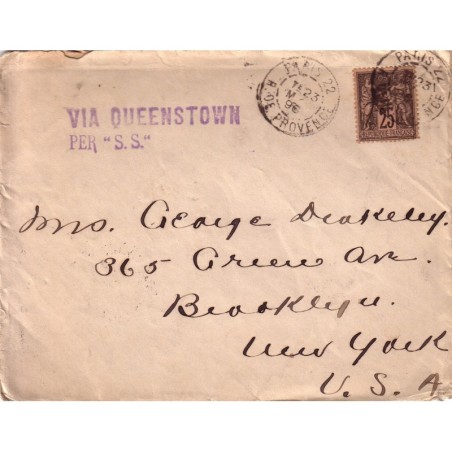 VIA QUEENSTOWN
PER "S.S."
PARIS 22
23
96
R. DE PROVENCE
PARIS 22
23
25
Mrs. George Drakeley.
365 Green Av.
Brooklyn.
New York
U.S.A